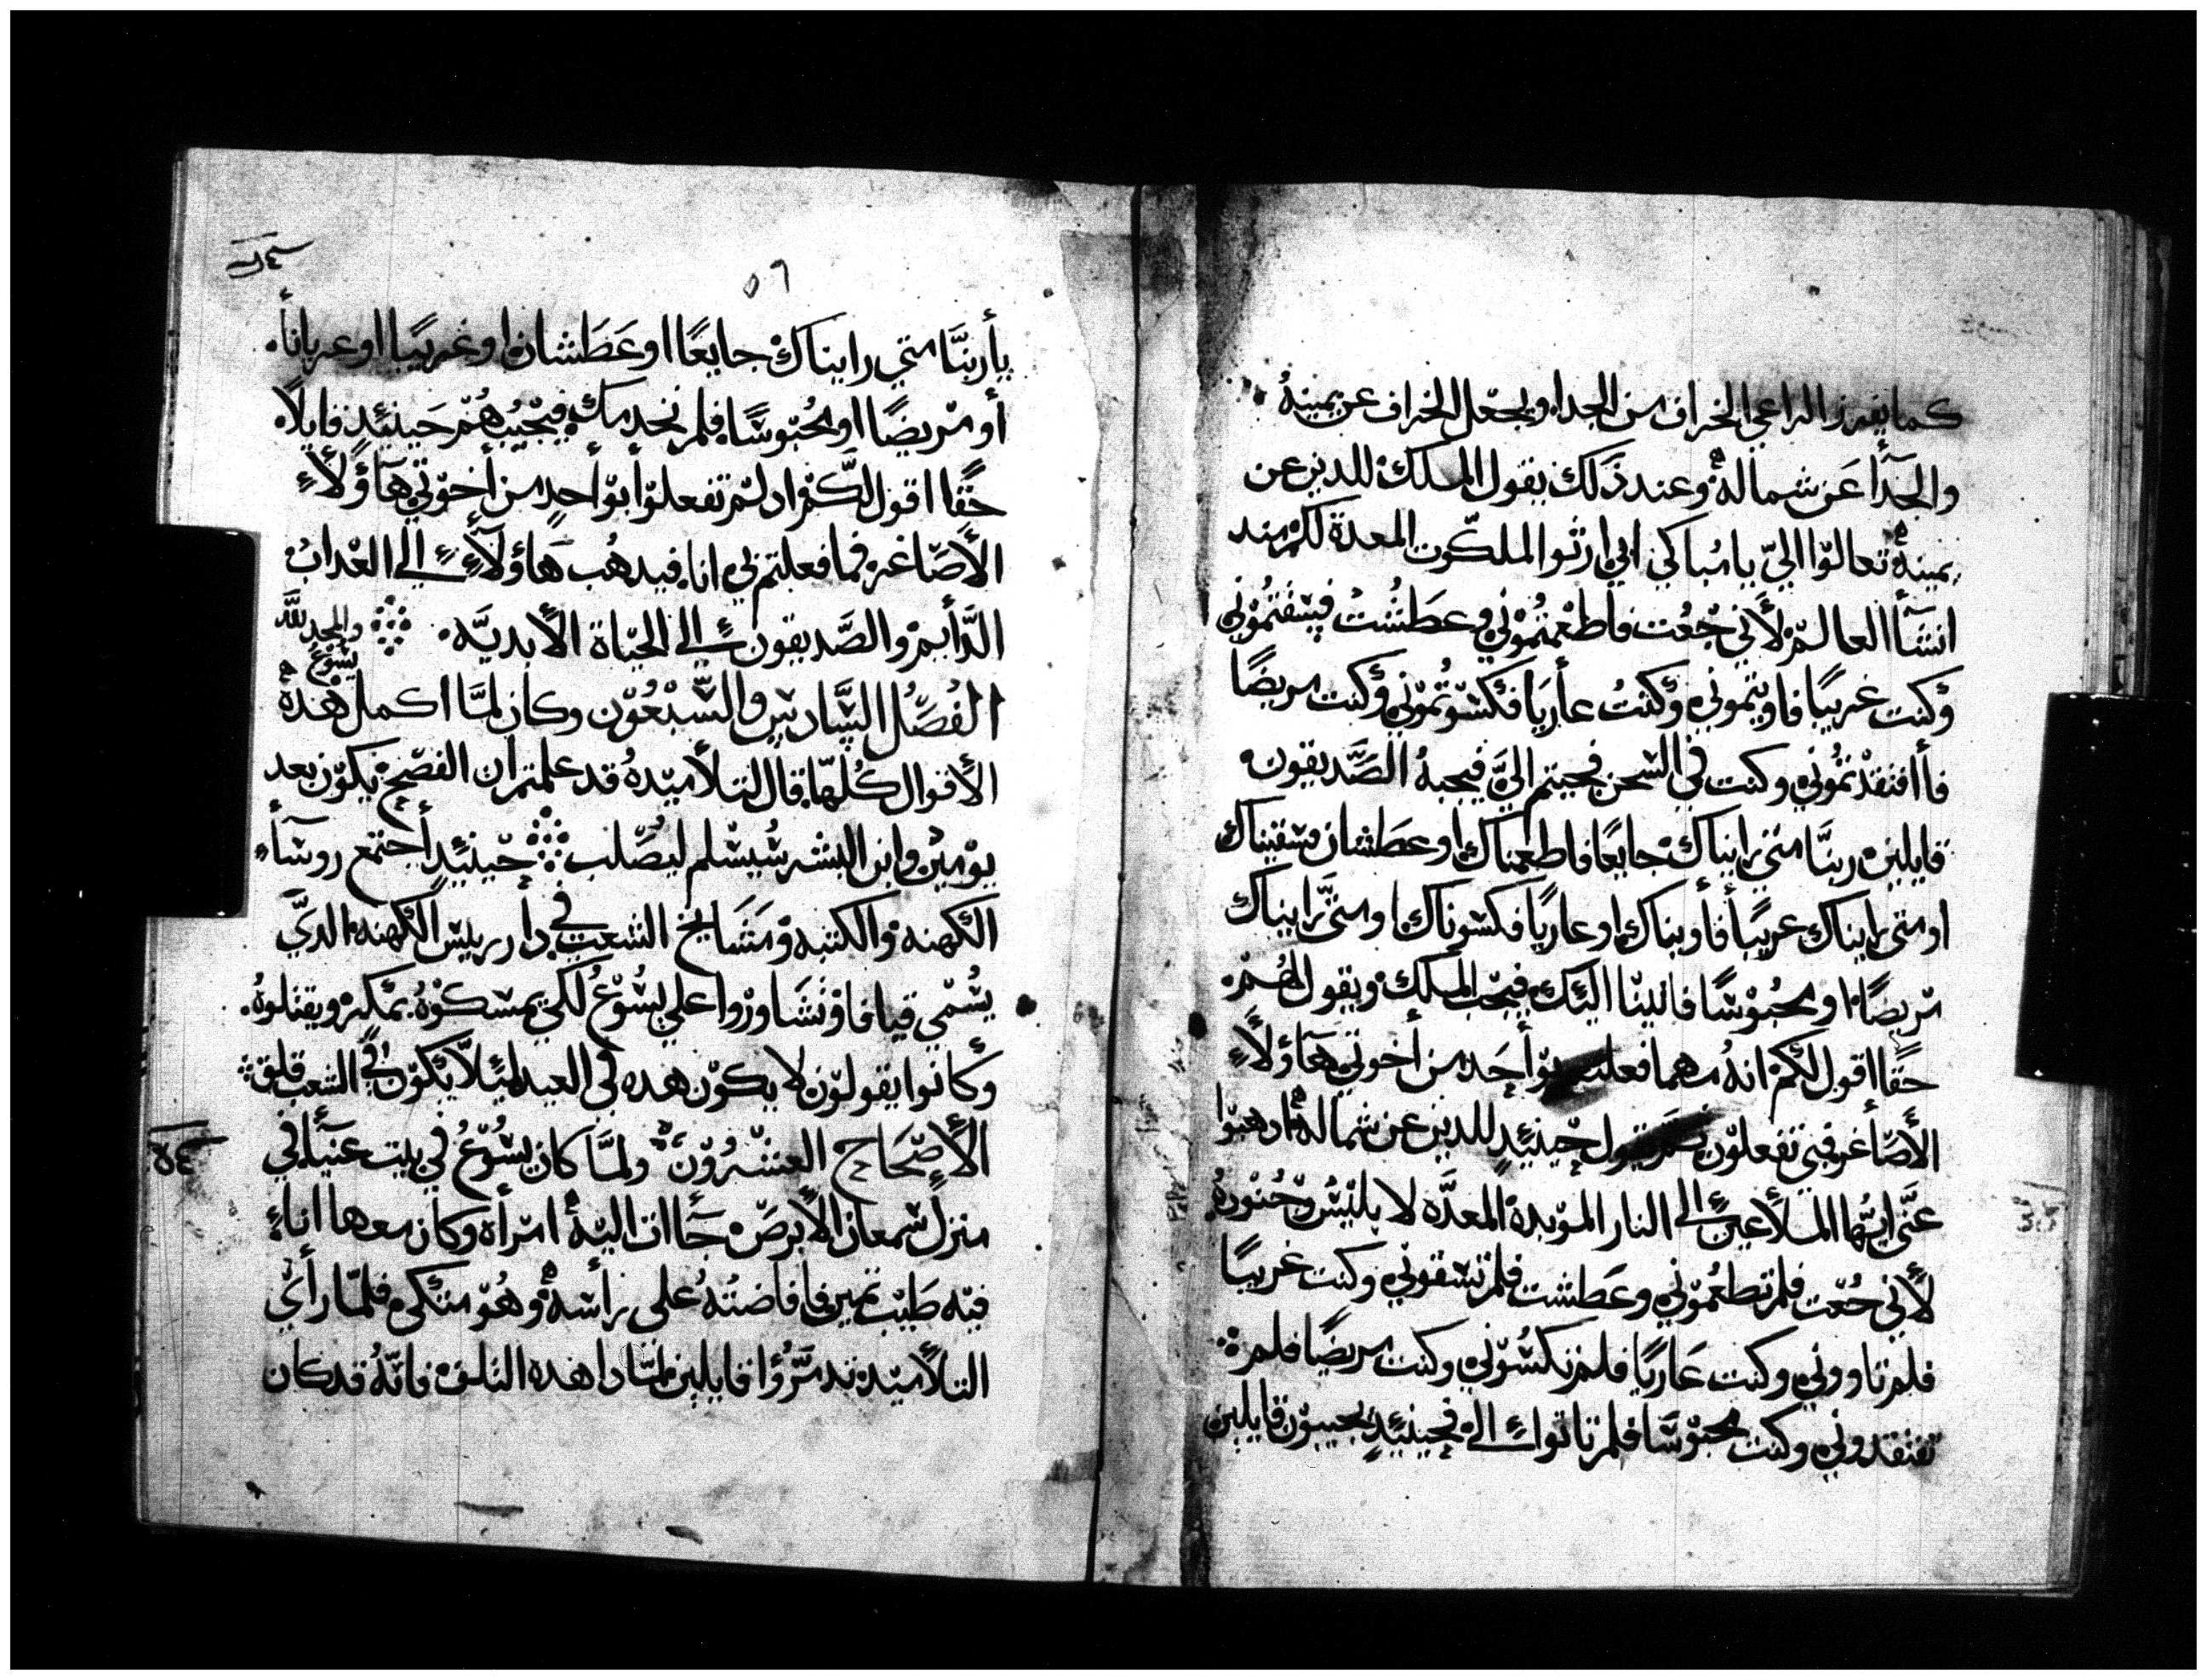 كما يفرز الراعي الخراف من الجدا ويجعل الخراف عن يمينهُ
والجدأ عن شماله وعند ذلك يقول الملك للدين عن
يمينه تعالوا اليّ يا مباركي ابي ارثوا الملكوت المعدة لكم مند
انشأ العالم لأني جعت فاطعمتموني وعطشت فسقتموني
وكنت غريبًا فاويتموني وكنتُ عأريا فكسوتموني وكنت مريضًا
فأ افتقدتموني وكنت في السجن فجيتم اليَّ فيجيبهُ الصَّديقون
قايلين ربنَّا متي رايناك جايعًا فاطعمناك او عطشان فسقيناك
او متي رايناك غريبًا فأويناك او عاريًا فكسوناك او متي رايناك
مريضًا او محبوسًا فاتينا اليك فيجيب الملك ويقول لهُم
حقًا اقول لكم انهُ مهما فعلتم بوأحد من أخوتي هآؤلاء
الأصأغر فبي تفعلون ثم يقول حينيدٍ للدين عن شماله ادهبوا
عنَّي ايتُّها الملاعين الي النار الموبدة المعدَّه لابليس وجنوده
لأني جُعت فلم تطعموني وعطشت فلم تسقوني وكنت غريبًا
فلم تاووني وكنت عاريًا فلم تكسُوني وكنت مريضًا فلم
تفتقدوني وكنت محبوسًا فلم تاتوا الي فحينيدٍ يجيبون قايلين
٥٦
يأربنَّا متي رايناك جايعًا او عَطَشان او غريبًا او عريانأ
أو مريضًا او محبوسًا فلم نخدمك فيجيبُهُم حينيدٍ قايلاً
حقًا اقول لكم اد لم تفعلوا بوأحدٍ من أخوتي هآؤلاء
الأصاغر فما فعلتم بي انا فيدهُب هاؤلاء الي العداب
الدَّأيم والصَّديقون الي الحياة الأبديَّه والمجد للَّه
يسوع
الفصل السَّادس والسَّبعون وكان لمَّا اكمل هده
الأقوال كلهَّا قال لتلاميده قد علمتم ان الفصح يكون بعد
يومين وابن البشر سُيسلم ليصلب حينيدٍ أجتمع روسآء
الكهنه والكتبه ومشَايخ الشعب في دأر رييس الكهنه الدي
يُسمي قيافا وتشاوروا علي يسُوعُ لكي يمسكوهُ بمكر ويقتلوهُ
وكانوا يقولون لا يكون هده في العيد ليلا يكون في الشعب قلق
الأصحاح العشرون ولمَّا كان يسُوع في بيت عنيأ في
منزل سمعان الأبرص جأات اليه امرأة وكان معها اناء
فيه طيب تمين فافاضتهُ علي رأسه وهُو متكي فلمَّا رأي
التلاميد تدمَّرُوا قايلين لمَّادا هده التلاف فانَّهُ قد كان